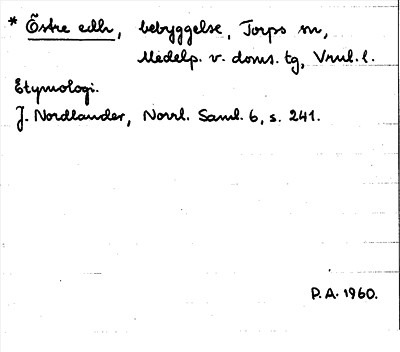 * Östre edh, bebyggelse, Torps sn,
Medelp. v. doms. tg, Vrnl. l.
Etymologi.
J. Nordlander, Norrl. Saml. 6, s. 241.
P.A. 1960.